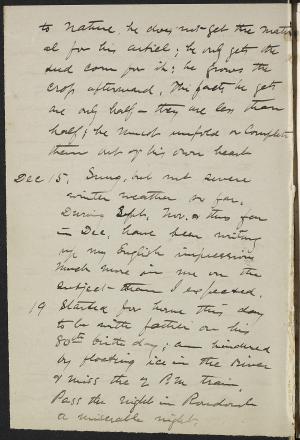 to nature, he does not get the materi
al for his articel; he only gets the
seed corn for it; he grows the
crop afterward. The facts he gets
are only half - they are less than
half; he must unfold or complete
them out of his own heart
Dec 15, Snug, but not severe
winter weather so far.
During Sept, Nov. & thus far
in Dec, have been writing
up my English impressions
Much more in me on the
subject than I expected.
19 Started for home this day
to be with father on his
80th birth day; am hindered
by floating ice in the river
& miss the 7 P.M. train.
Pass the night in Rondout
a miserable night,